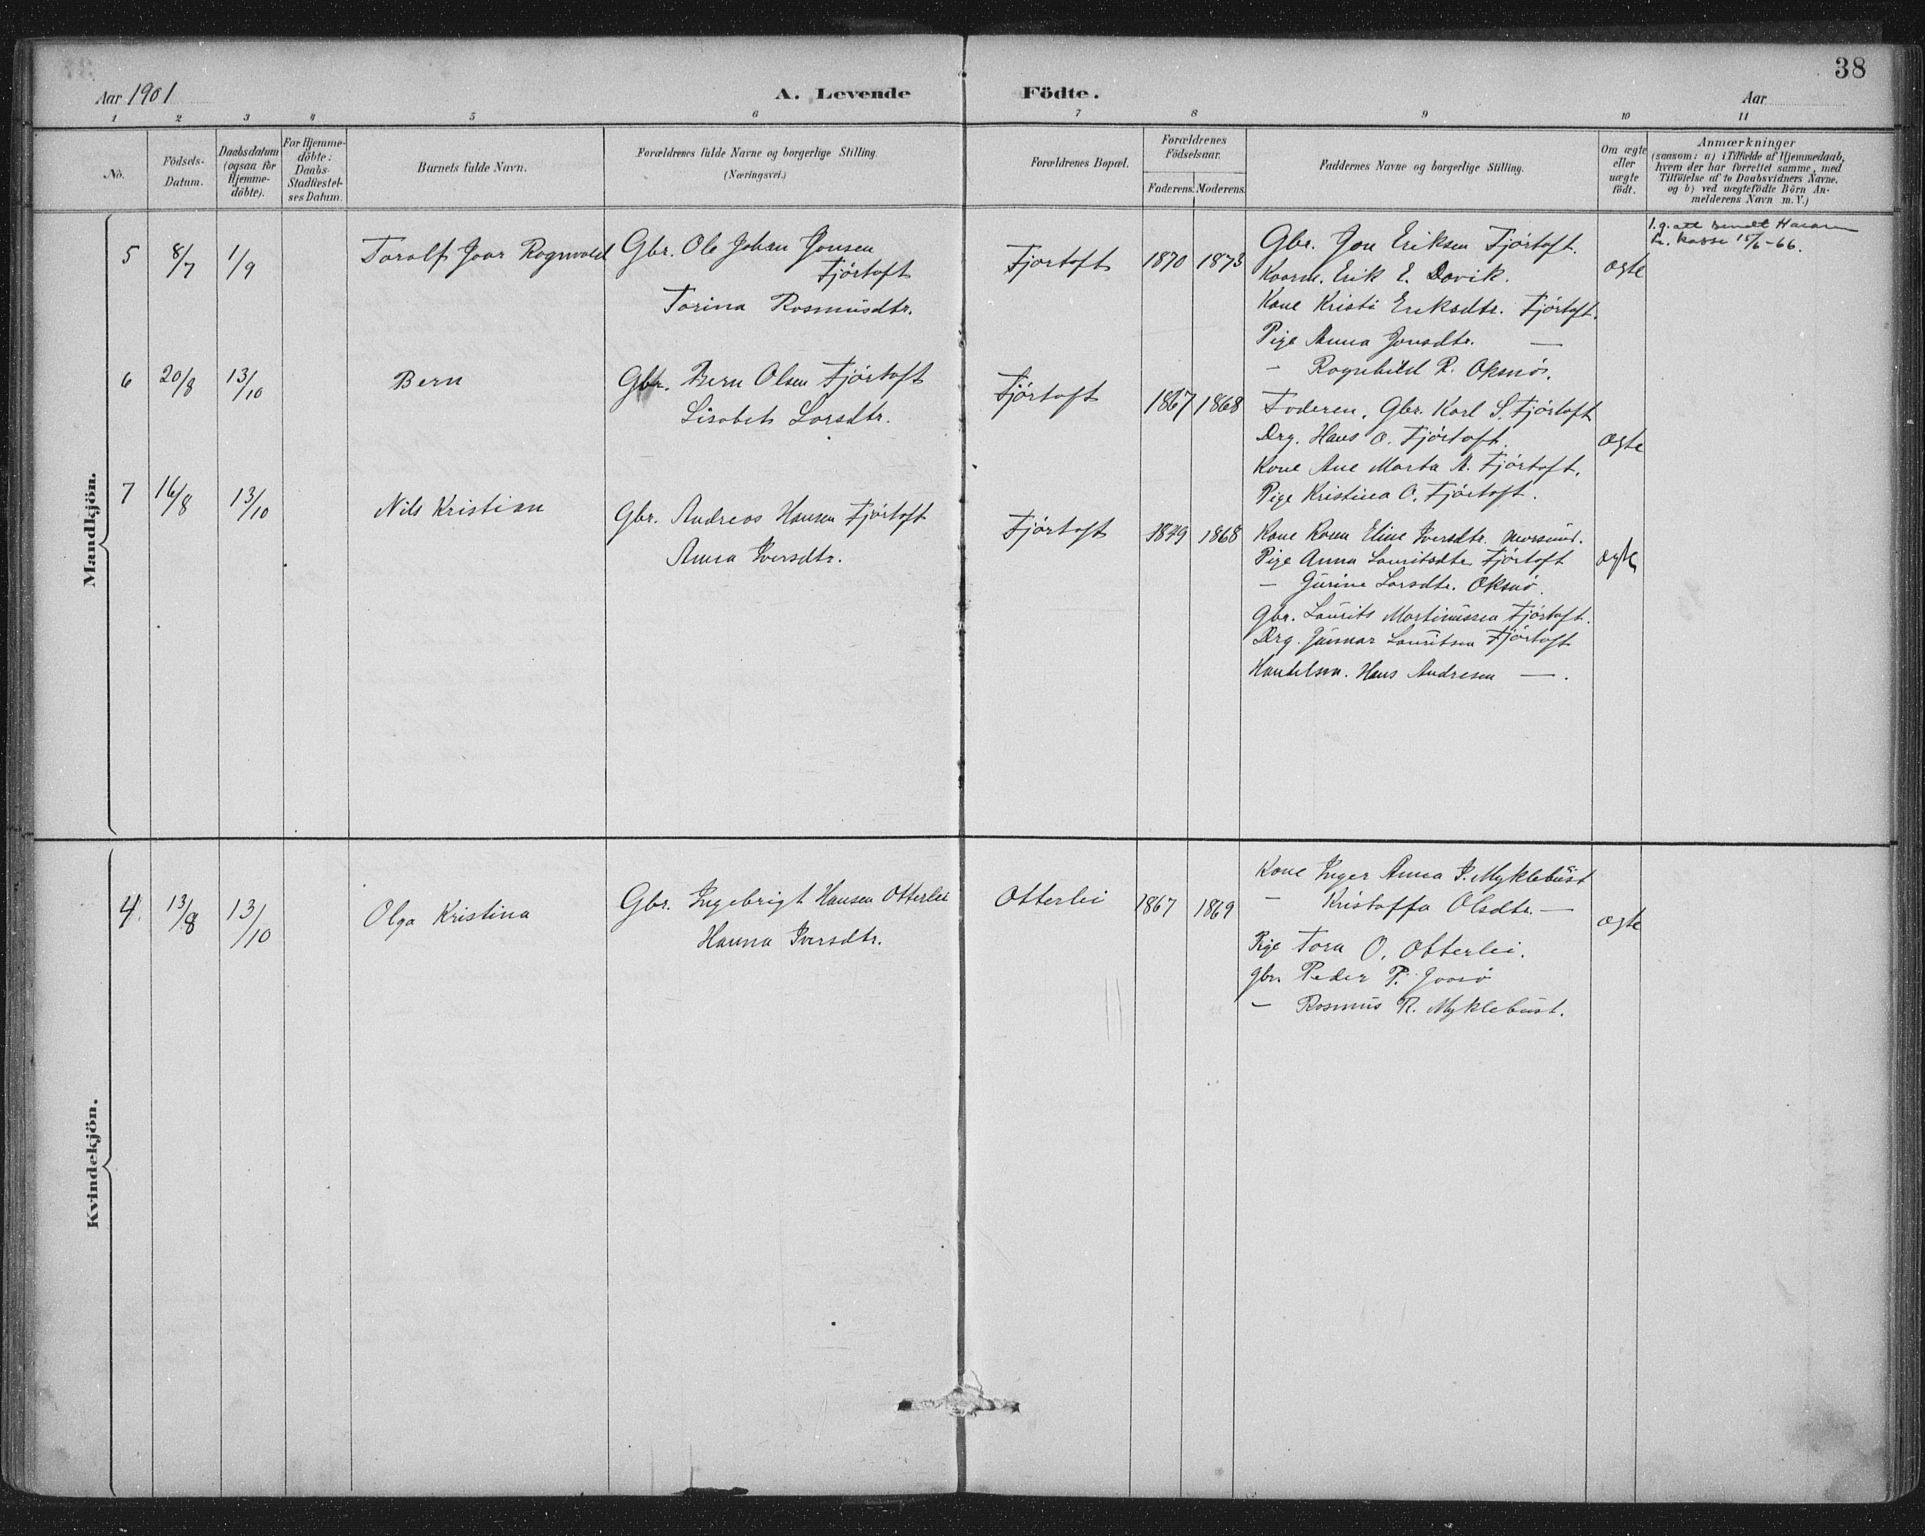 38
Aar 1901
A. Levende Födte.
Aar
1 2 3 4 5 6 7 8 9 10 11
No.
Födsels-Datum.
Daabsdatum (ogsaa for Hjemme-döbte).
For Hjemme-döbte: Daabs-Stadfæstel-ses Datum.
Barnets fulde Navn.
Forældrenes fulde Navne og borgerlige Stilling. (Næringsvei.)
Forældrenes Bopæl.
Forældrenes Födselsaar.
Faderens. Moderens.
Faddernes Navne og borgerlige Stilling.
Om ægte eller uægte födt.
Anmærkninger
(saasom: a) i Tilfælde af Hjemmedaab, hvem der har forrettet samme, med Tilföielse af to Daabsvidners Navne, og b) ved uægtefödte Börn An-melderens Navn m. V.)
Mandkjön.
5 8/7 1/9 Toralf Ragnvald
Gbr. Ole Johan Jonsen
Fjörtoft
Torina Rasmusdtr.
Fjortoft 1870 1873
Gbr. Jon Eriksen Fjörtoft.
Erik E. Davik.
Kone Kristi Eriksdtr. Fjörtoft.
Pige Anna Jonsdtr. —
- Ragnhild R. Oksnö.
ægte
l.g.att sendt Haram
tr. kasse 15/6-66.
6 20/8 13/10 Bern
Gbr. Bern Olsen Fjörtoft
Lisabet Larsdtr.
Fjörtoft 1867 1868
Faderen, Gbr. Karl S. Fjörtoft
Drg. Hans O. Fjörtoft.
Kone Ane Marta A. Fjörtoft.
Pige Kristina O. Fjörtoft.
ægte
7 16/8 13/10 Nils Kristian
Gbr. Andreas Hansen Fjörtoft
Anna Iversdtr.
Fjörtoft 1849 1868
Kone Karen Eline Iversdtr.
Pige Anna Lauritsdtr Fjörtoft
— Gurine Larsdtr. Oksnö.
Gbr. Laurits Martinussen Fjörtoft.
Drg. Gunnar Lauritsen Fjörtoft
Handelsm. Hans Andresen — .
ægte
Kvindekjön.
4. 13/8 13/10 Olga Kristina
Gbr. Ingebrigt Hansen Otterlei
Hanna Iversdtr.
Otterlei 1867 1869
Kone Inger Anna I. Myklebust
— Kristoffa Olsdtr. —
Pige Tora O. Otterlei.
Gbr. Peder P.
— Rasmus R. Myklebust.
ægte